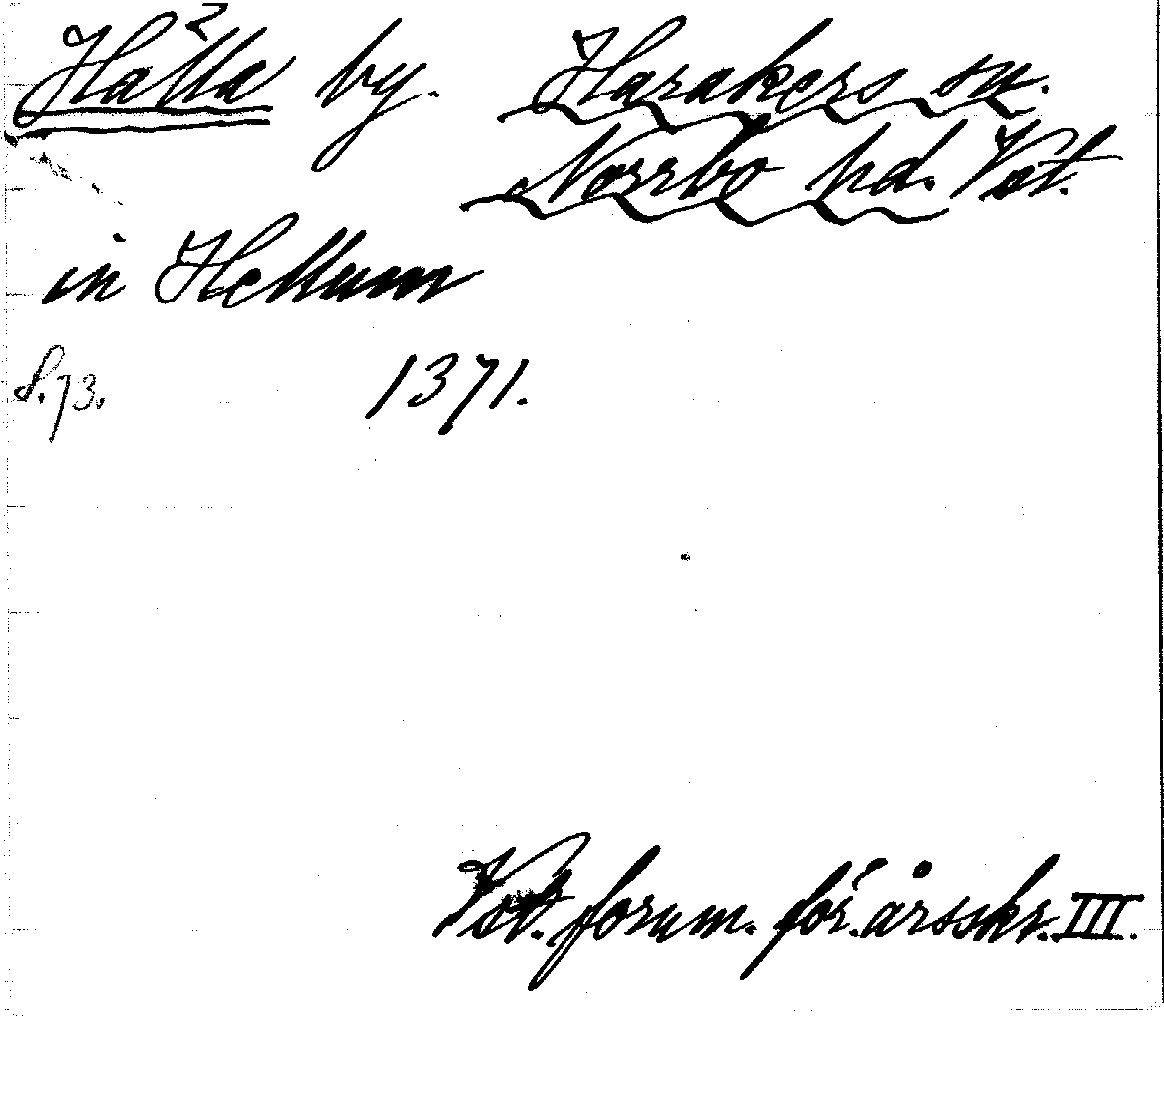 Hålla by. Harakers sn.
Norrbo hd. Vst.
in Hellum
S. 73. 1371.
Vst. fornm. för. årsskr. III.